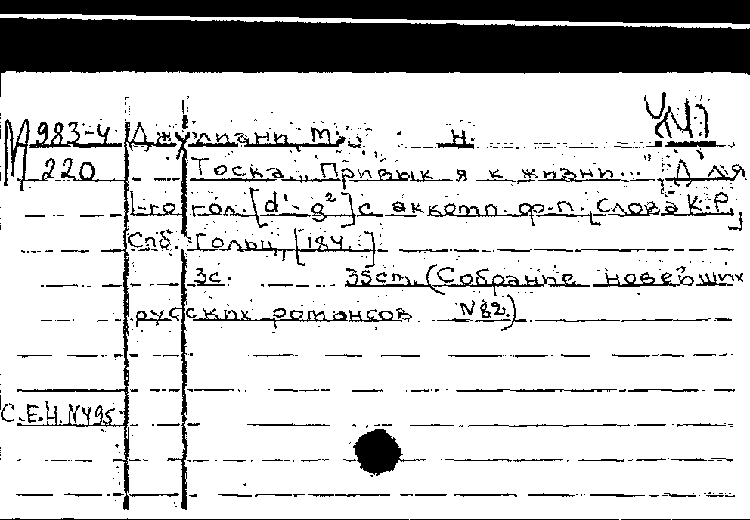 М 983-4 Джулиани, М. Н.
220 Тоска. "Привык я к жизни..." Для
1-го гол. [d'-g²] с аккомп. ф-п. [Слова К.Р.]
Спб. Гольц, [184.]
3с. 35cm. (Собрание новейших
русских романсов N82.)
С.Е.Н.N495